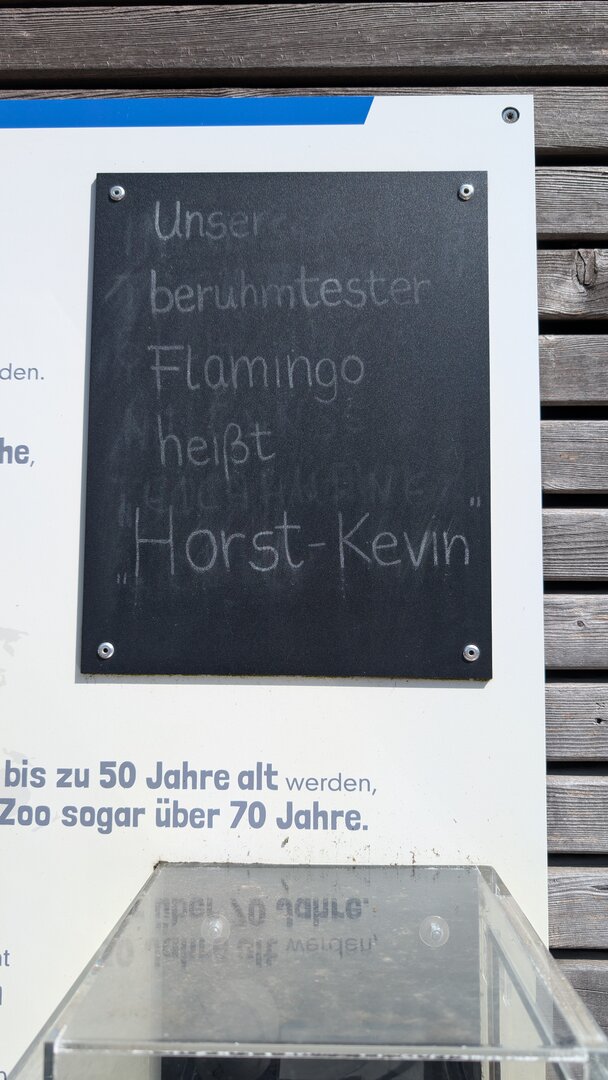 den.
he,
Unser
beruhmtester
Flamingo
heißt
„Horst-Kevin"
bis zu 50 Jahre alt werden,
Zoo sogar über 70 Jahre.